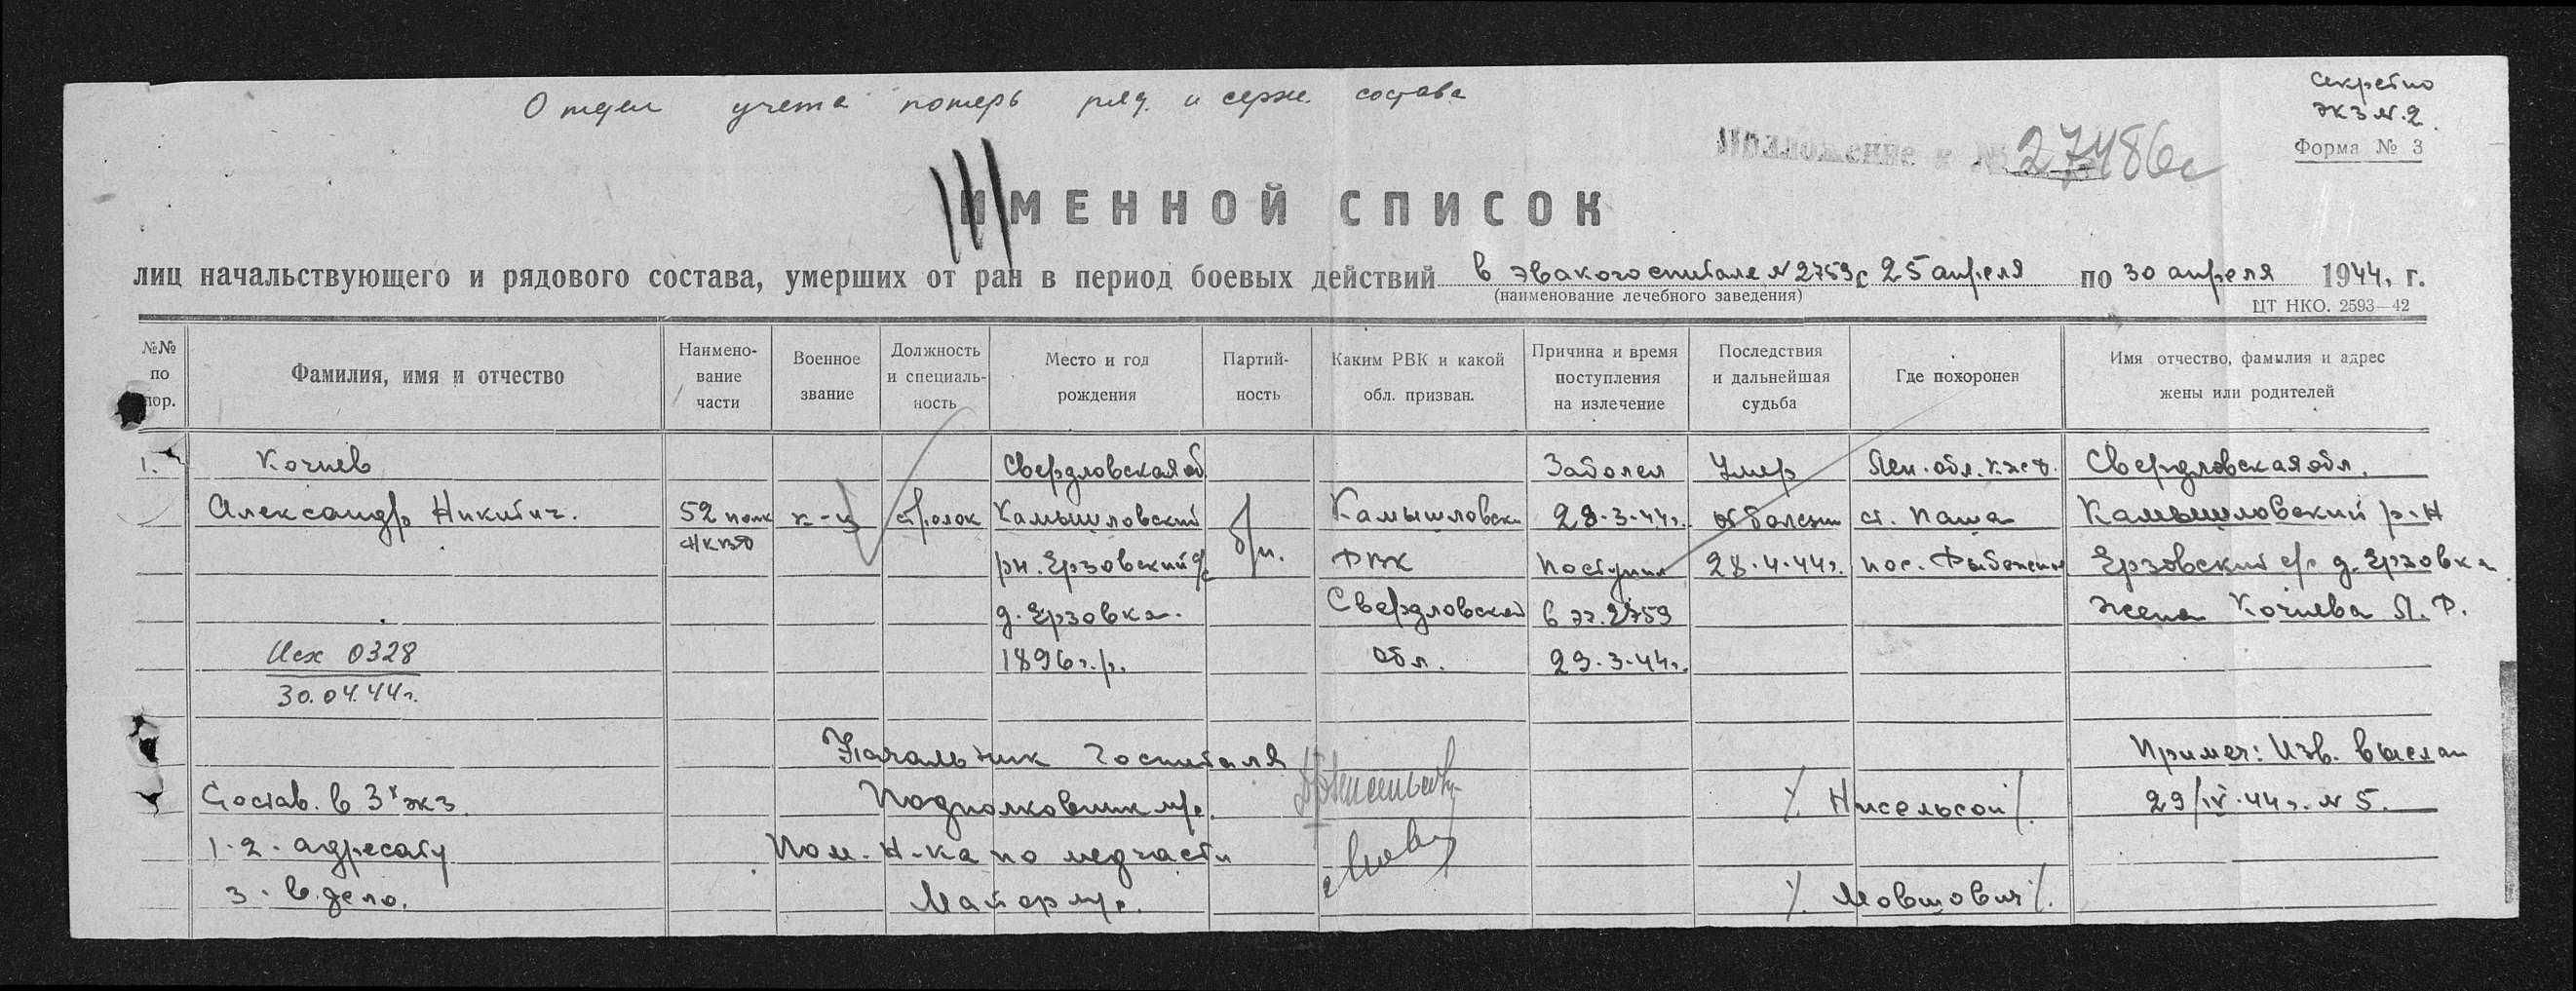 Отдел учета потерь ряд. и серж. состава
Секретно
Экз N.2.
Форма № 3
Приложение к № 27486с
ИМЕННОЙ СПИСОК
лиц начальствующего и рядового состава, умерших от ран в период боевых действий в эвакогоспитале N 2759 с 25 апреля по 30 апреля 1944, г.
(наименование лечебного заведения)
ЦТ НКО. 2593—42
№№ по пор.
Фамилия, имя и отчество
Наимено-
вание
части
Военное
звание
Должность
и специаль-
ность
Место и год
рождения
Партий-
ность
Каким РВК и какой
обл. призван.
Причина и время
поступления
на излечение
Последствия
и дальнейшая
судьба
Где похоронен
Имя отчество, фамилия и адрес
жены или родителей
1.
Кочнев
Александр Никитич.
52 полк
НКВД
к-ц
стрелок
Свердловская об
Камышловский
рн. Ерзовский с/с
д. Ерзовка.
1896г.р.
б/п.
Камышловск
РВК
Свердловской
обл.
Заболел
28.3.44г.
поступил
в эг. 2759
29.3.44г.
Умер
от болезни
28.4.44г.
Лен. обл. к.ж.д.
ст. Паша
пос.
Свердловская обл.
Камышловский р-н
Ерзовский с/с д. Ерзовка
жена Кочнева А. Ф.
Исх 0328
30.04.44г.
Начальник Госпиталя
Подполковник м/с.
/. Нисельсон /.
Пом. Н-ка по медчасти
Майор м/с.
/. Мовшович /.
Примеч: Изв. выслан
29/IV.44г. N 5.
Состав. в 3х экз.
1.2. адресату
3. в дело.